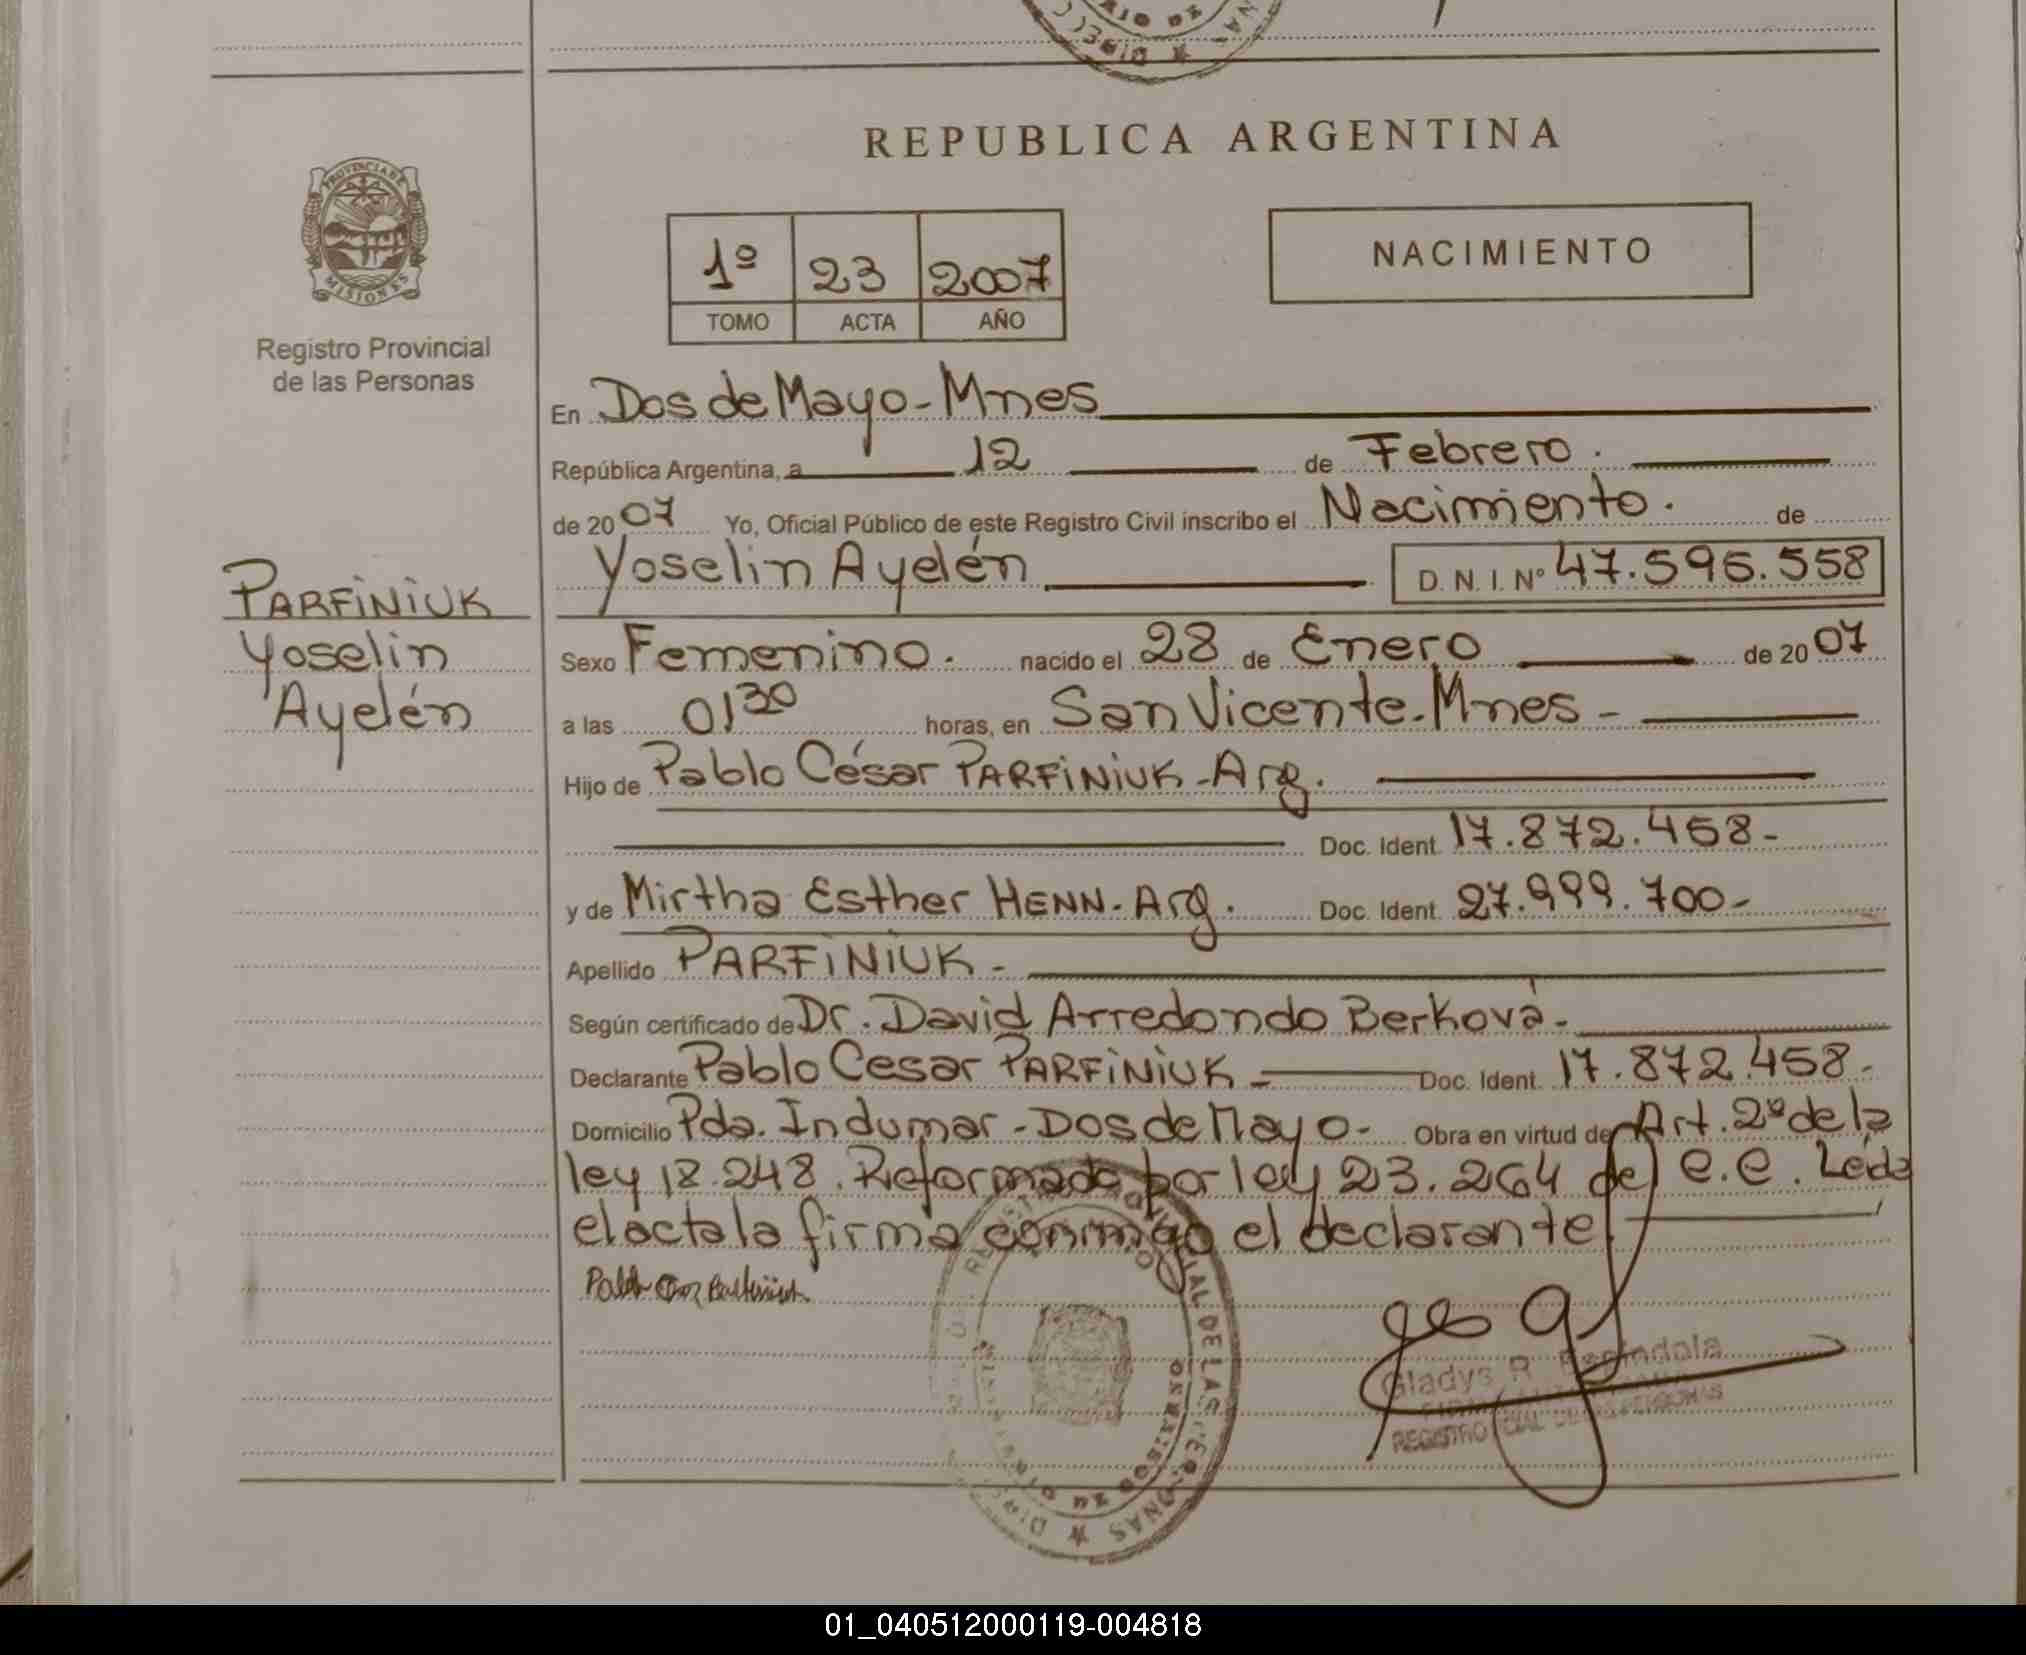 REPUBLICA ARGENTINA
PROVINCIA DE
MISIONES
Registro Provincial
de las Personas
NACIMIENTO
1º 23 2007
TOMO ACTA AÑO
En Dos de Mayo - Mnes
República Argentina, a 12 de Febrero.
de 2007 Yo, Oficial Público de este Registro Civil inscribo el Nacimiento. de
Yoselin Ayelén D. N. I. Nº 47.595.558
PARFINIUK
Yoselin
Ayelén
Sexo Femenino. nacido el 28 de Enero de 2007
a las 01³⁰ horas, en San Vicente. Mnes -
Hijo de Pablo César PARFINIUK - Arg.
Doc. Ident. 17.872.458-
y de Mirtha Esther HENN. Arg. Doc. Ident. 27.999.700-
Apellido PARFINIUK -
Según certificado de Dr. David Arredondo Berková-
Declarante Pablo Cesar PARFINIUK - Doc. Ident. 17.872.458-
Domicilio Pda. Indumar - Dos de Mayo - Obra en virtud de Art. 2º de la
ley 18.248. Reformada por ley 23.264 de e.e. Leída
el acta la firma conmigo el declarante
Gladys R. Espindola
01_040512000119-004818